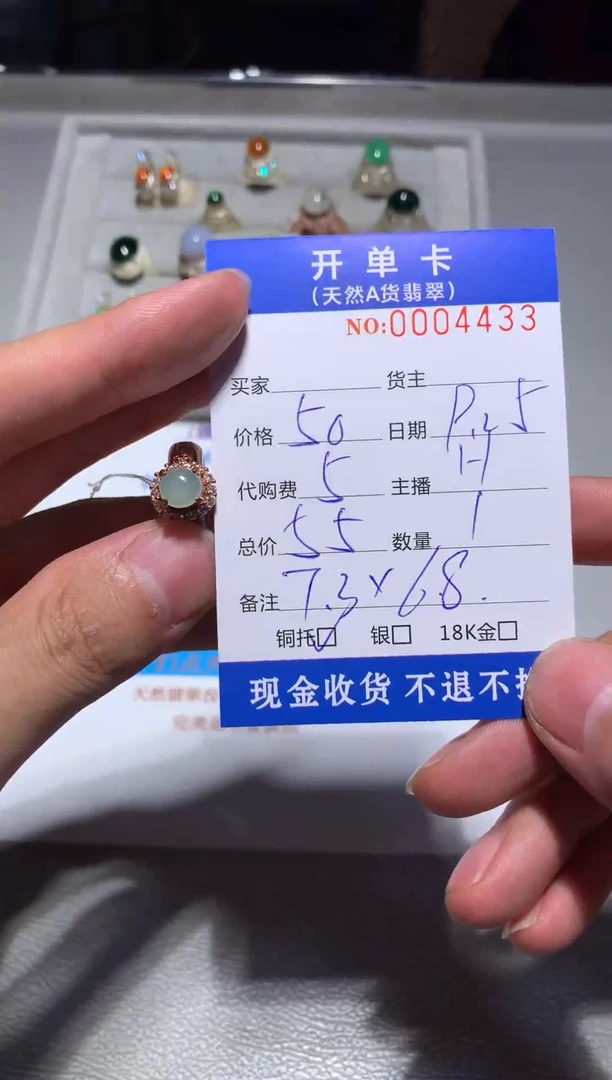 开单卡
(天然A货翡翠)
NO:0004433
买家 货主
价格 50 日期
代购费 5 主播 H
总价 55 数量 1
备注 7.3×6.8.
铜托☑ 银☐ 18K金☐
现金收货 不退不